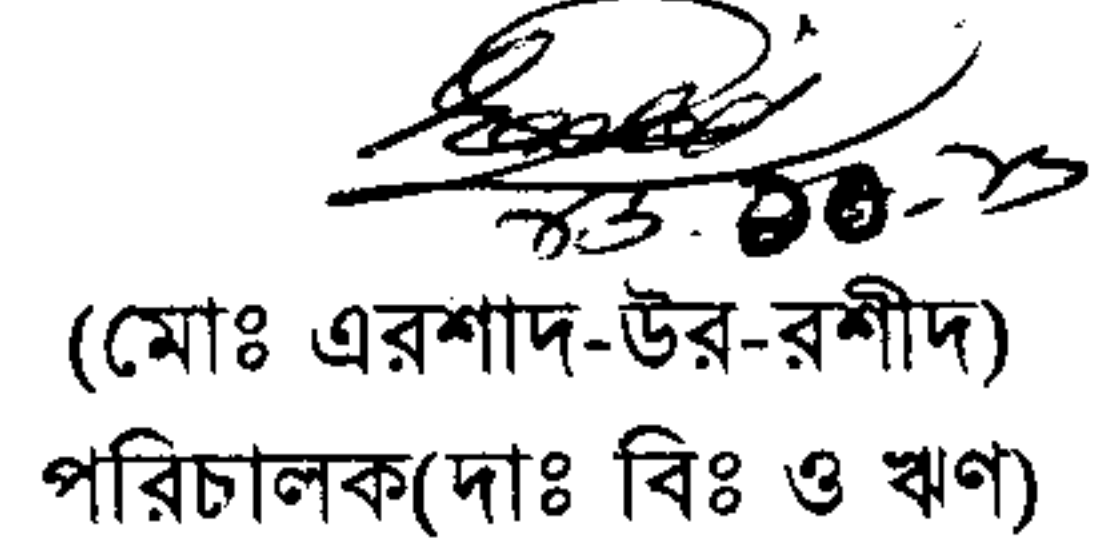 (মোঃ এরশাদ-উর-রশীদ)
পরিচালক(দাঃ বিঃ ও ঋণ)